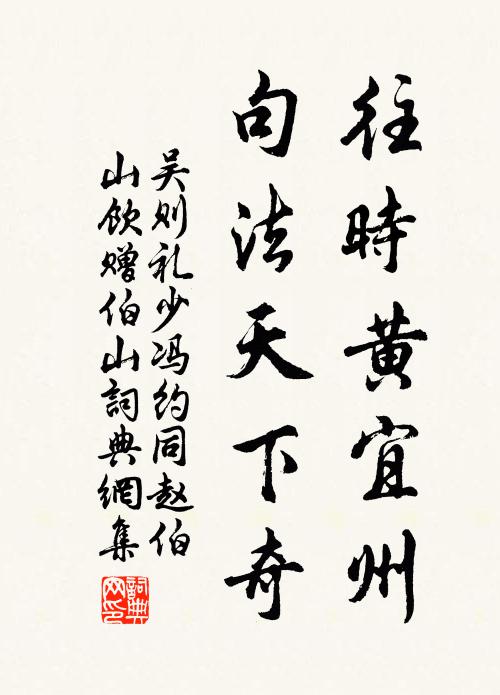 往時黄宜州
句法天下奇
吴则礼少冯约同赵伯
山饮赠伯山詞典網集
詞典
网印